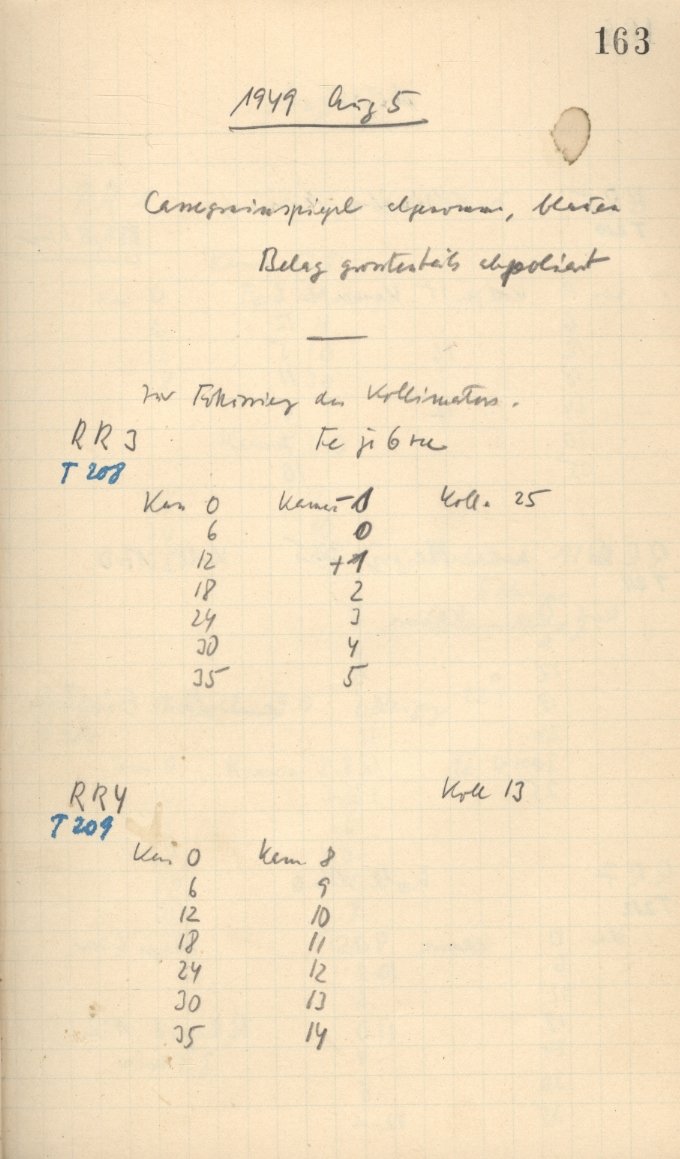 163
1949 Aug 5
Cassegrainspiegel abgenommen, blauen
Belag grösstenteils abpoliert
Zur Fokussierung des Kollimators.
RR3 Fe je 6 sec
T 208
Kas 0 Kamera -1 Koll. 25
6 0
12 +1
18 2
24 3
30 4
35 5
RR4 Koll 13
T 209
Kas 0 Kam 8
6 9
12 10
18 11
24 12
30 13
35 14